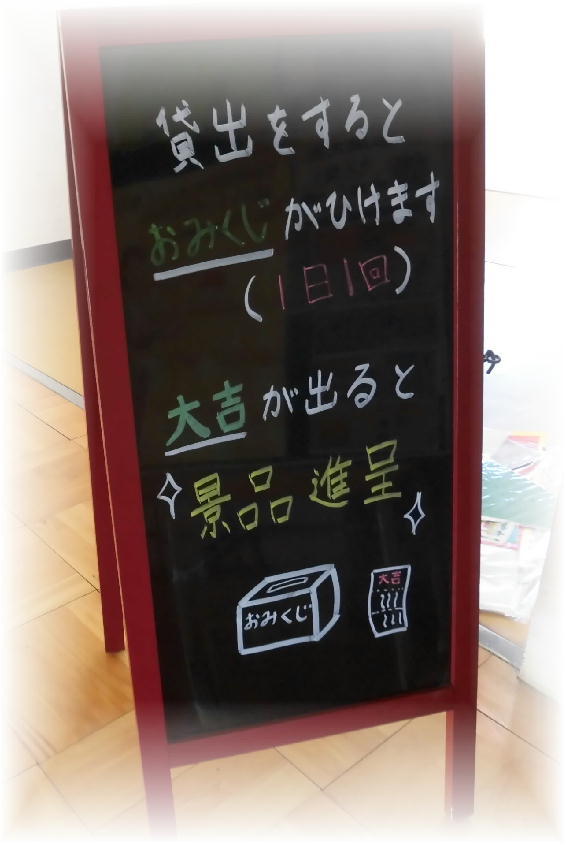 貸出をすると
おみくじがひけます
(1日1回)
大吉が出ると
景品進呈
おみくじ
大吉